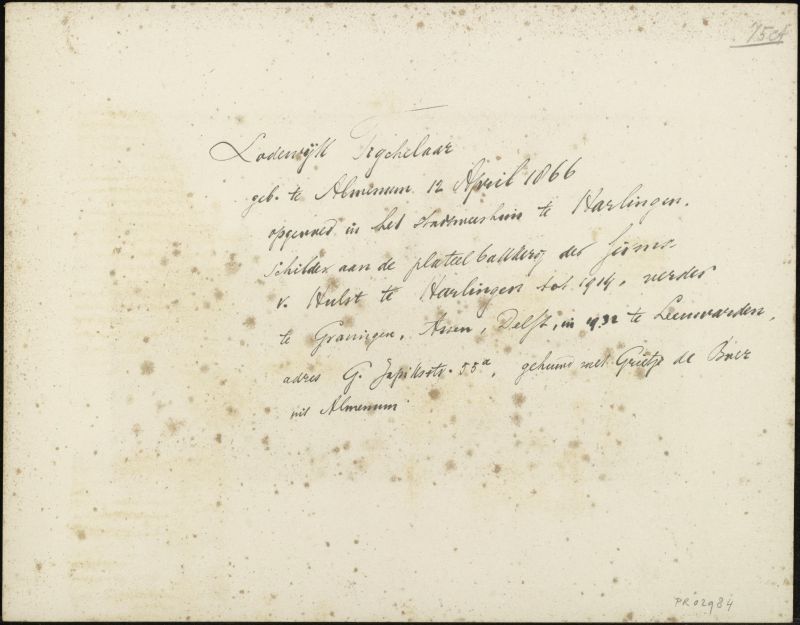 75cA
Lodewijk Tigchelaar
geb. te Almenum 12 April 1866
opgevoed in het stadsweeshuis te Harlingen.
schilder aan de plateelbakkerij der firma
v. Hulst te Harlingen tot 1914, verder
te Groningen, Assen, Delft, in 1932 te Leeuwarden,
adres G. Japiksstr. 55a, gehuwd met Grietje de Boer
uit Almenum
PR 02984